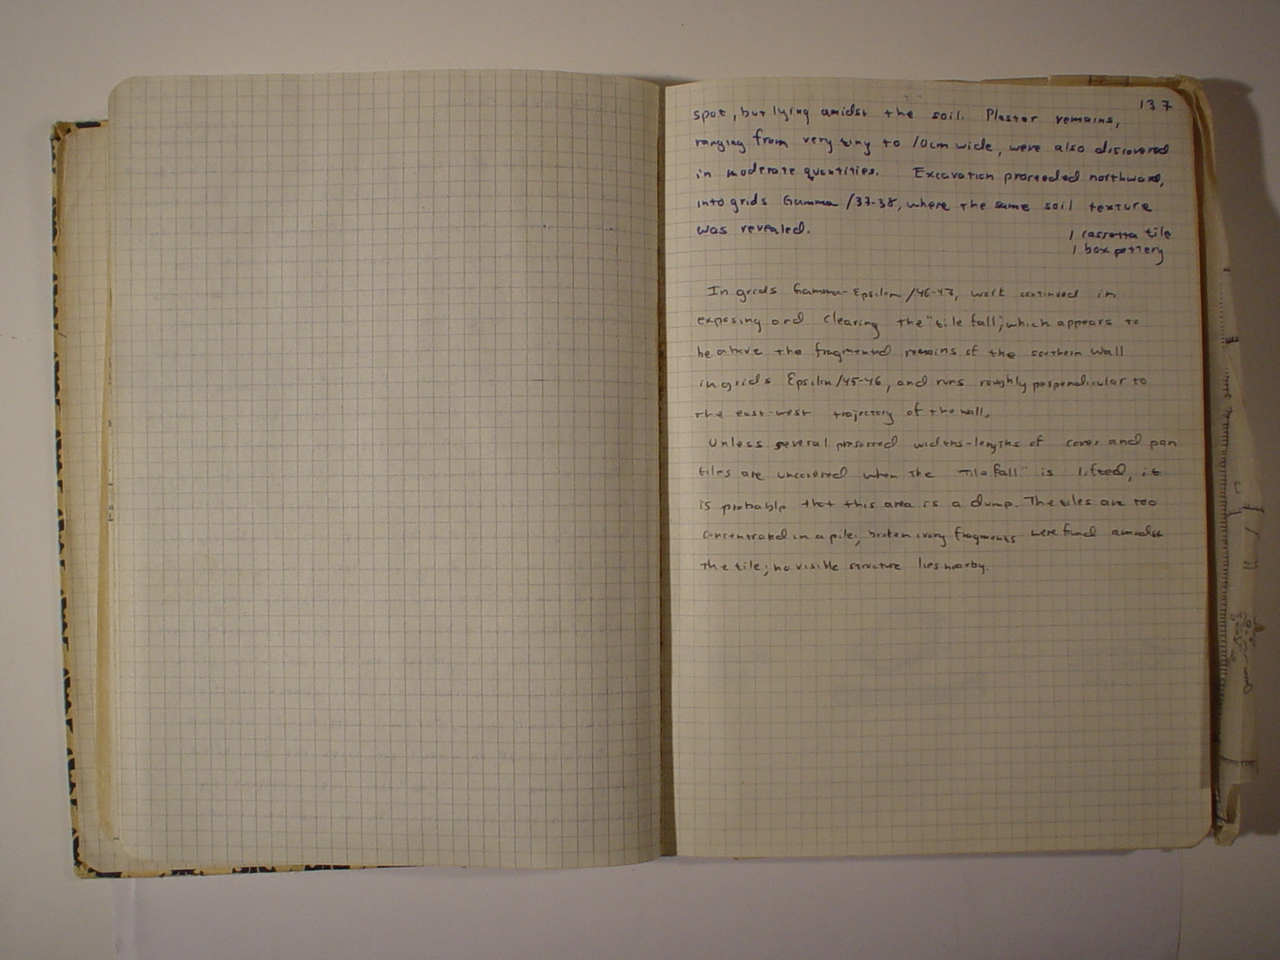 137
spot, but lying amidst the soil. Plaster remains,
ranging from very tiny to 10cm wide, were also discovered
in moderate quantities. Excavation proceeded northward,
into grids Gamma/37-38, where the same soil texture
was revealed.
1 cassetta tile
1 box pottery
In grids Gamma-Epsilon/46-47, work continued in
exposing and clearing the "tile fall", which appears to
be above the fragmented remains of the southern wall
in grids Epsilon/45-46, and runs roughly perpendicular to
the east-west trajectory of the wall.
Unless several preserved widths-lengths of cover and pan
tiles are uncovered when the "tile fall" is lifted, it
is probable that this area is a dump. The tiles are too
concentrated in a pile; broken ivory fragments were found amidst
the tile; no visible structure lies nearby.